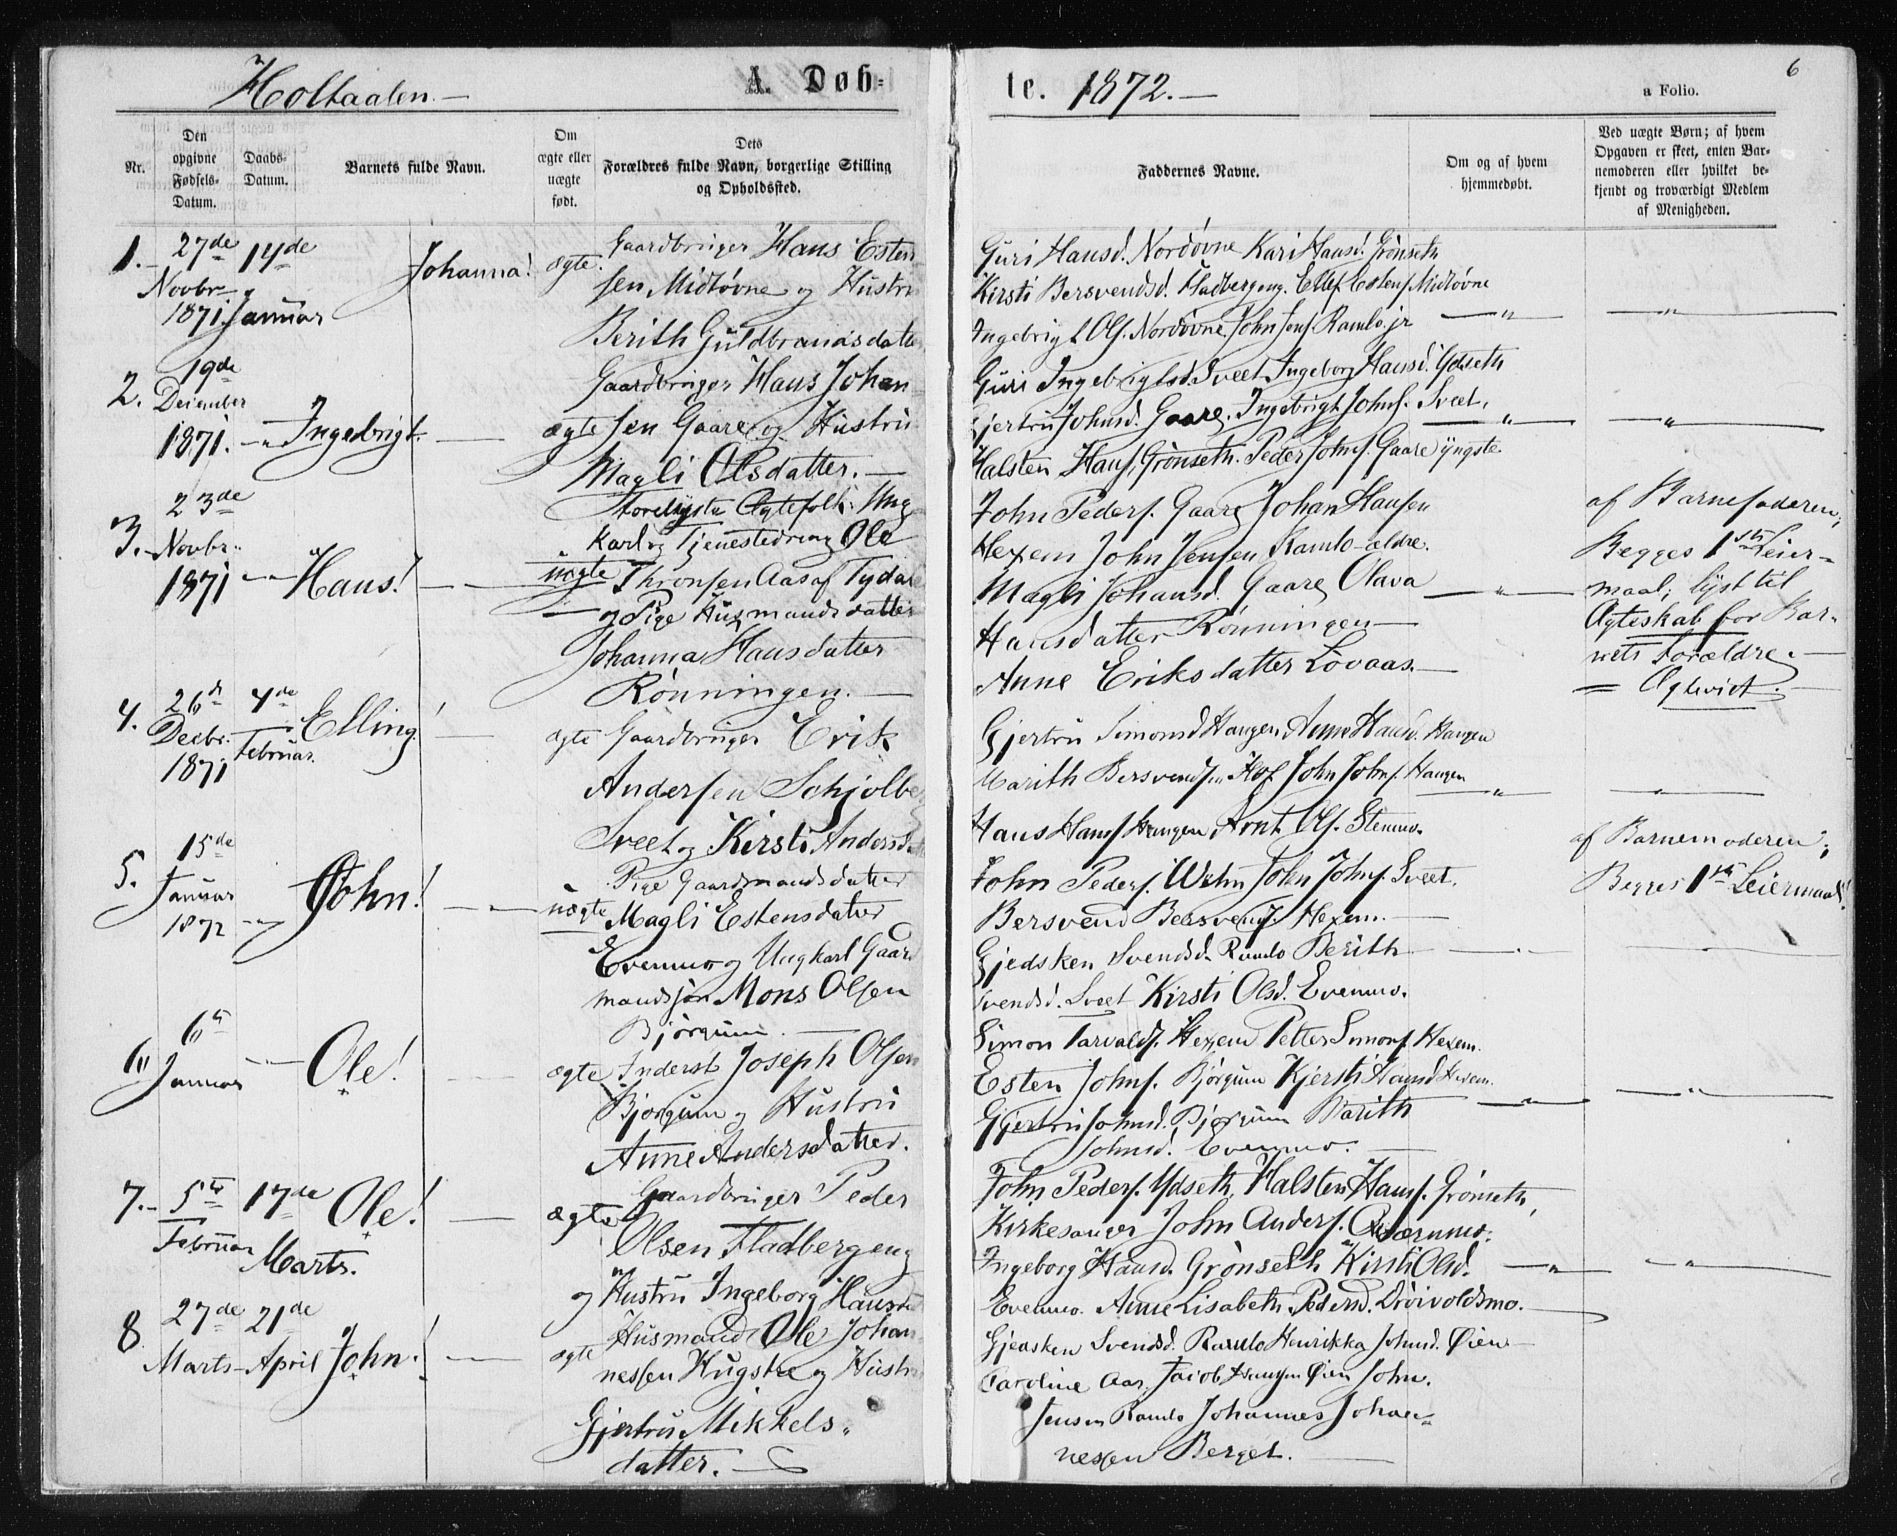 Holtaalen.—
A. Døbte. 1872.—
6
a Folio.
Nr.
Den opgivne Fødsels-Datum.
Daabs-Datum.
Barnets fulde Navn.
Om ægte eller uægte født.
Dets Forældres fulde Navn, borgerlige Stilling og Opholdssted.
Faddernes Navne.
Om og af hvem hjemmedøbt.
Ved uægte Børn; af hvem Opgaven er skeet, enten Barnemoderen eller hvilket bekjendt og troværdigt Medlem af Menigheden.
1. 27de Novbr 1871. 14de Januar
Johanna!
ægte.
Gaardbruger Hans Esten
sen Midtøvne og Hustru
Berith Guldbrandsdatter
Guri Hansd. Nordøvne Kari Hansd. Grønseth
Kirsti Bersvendsd. Fladbergeng. Ellef Estens. Midtøvne
Ingebrigt Ols. Nordøvne John Jens. Ramlo jr
2. 19de December 1871. —"—
Ingebrigt.
ægte
Gaardbruger Hans Johan
sen Gaare og Hustru
Magli Olsdatter.—
Guri Ingebrigtsd. Sveet Ingeborg Hansd. Ydseth
Gjertru Johnsd. Gaare. Ingebrigt Johns. Svet.
Halsten Hans. Grønseth. Peder Johns. Gaare yngste
3. 23de Novbr. 1871 —"—
Hans!
uægte
Ægtefolk: Ung
karl og Tjenestedreng Ole
Thronsen Aas af Tydal
og Pige Husmandsdatter
Johanna Hansdatter
Rønningen.—
John Peders. Gaare Johan Hansen
Hexem John Jensen Ramlo ældre.
Magli Johansd. Gaare Olava
Hansdatter Rønningen—
Anne Eriksdatter Løvaas.—
af Barnefaderen;
Begges 1ste Leier-
maal; lyst til
Ægteskab for Bar-
nets Forældre.—
4. 26de Decbr. 1871 4de Februar.
Elling!
ægte
Gaardbruger Erik
Andersen Schjølbe
Svet og Kirsti Andersd
Gjertru Simonsd Haugen Anne Hansd. Haugen
Marith Bersvendsen Hof John Johns. Haugen
Hans Hans. Haugen Arnt Ols. Stenmo.
5. 15de Januar 1872 —"—
John!
uægte
Pige Gaardmandsdatter
Magli Estensdatter
Evenmo og Ungkarl Gaard
mandssøn Mons Olsen
Bjørgum.—
John Peders. John Johns. Sveet.
Bersvend Bersvends. Hexem.—
Gjedsken Svendsd. Ramlo Berith
Svendsd. Svet Kirsti Olsd. Evenmo.
af Barnemoderen;
Begges 1ste Leiermaal!
6. 6te Januar —"—
Ole!
ægte
Inderst Joseph Olsen
Bjørgum og Hustru
Anne Andersdatter.
Simon Tarvalds. Hexem Petter Simons. Hexem.
Esten Johns. Bjørgum Kjersti Hansd Hexem.
Gjertru Johnsd. Bjørgum Marith
Johnsd. Evenmo.—
7. 5te Februar 17de Marts.
Ole!
ægte
Gaardbruger Peder
Olsen Fladbergeng
og Hustru Ingeborg Hansd
John Peders. Ydseth, Halsten Hans. Grønseth,
Kirkesanger John Anders. Qværnmo.
Ingeborg Hansd. Grønseth Kirsti Olsd.
Evenmo. Anne Lisabeth Pedersd. Drøivoldsmo.
8 27de Marts 21de April
John!
ægte
Husmand Ole Johan
nessen Hugstre og Hustru
Gjertru Mikkels-
datter.—
Gjedsken Svendsd. Ramlo Henrikka Johnsd. Øien
Caroline Aas. Jacob Øien John.
Jensen Ramlo Johannes Johan-
nessen Berget.—